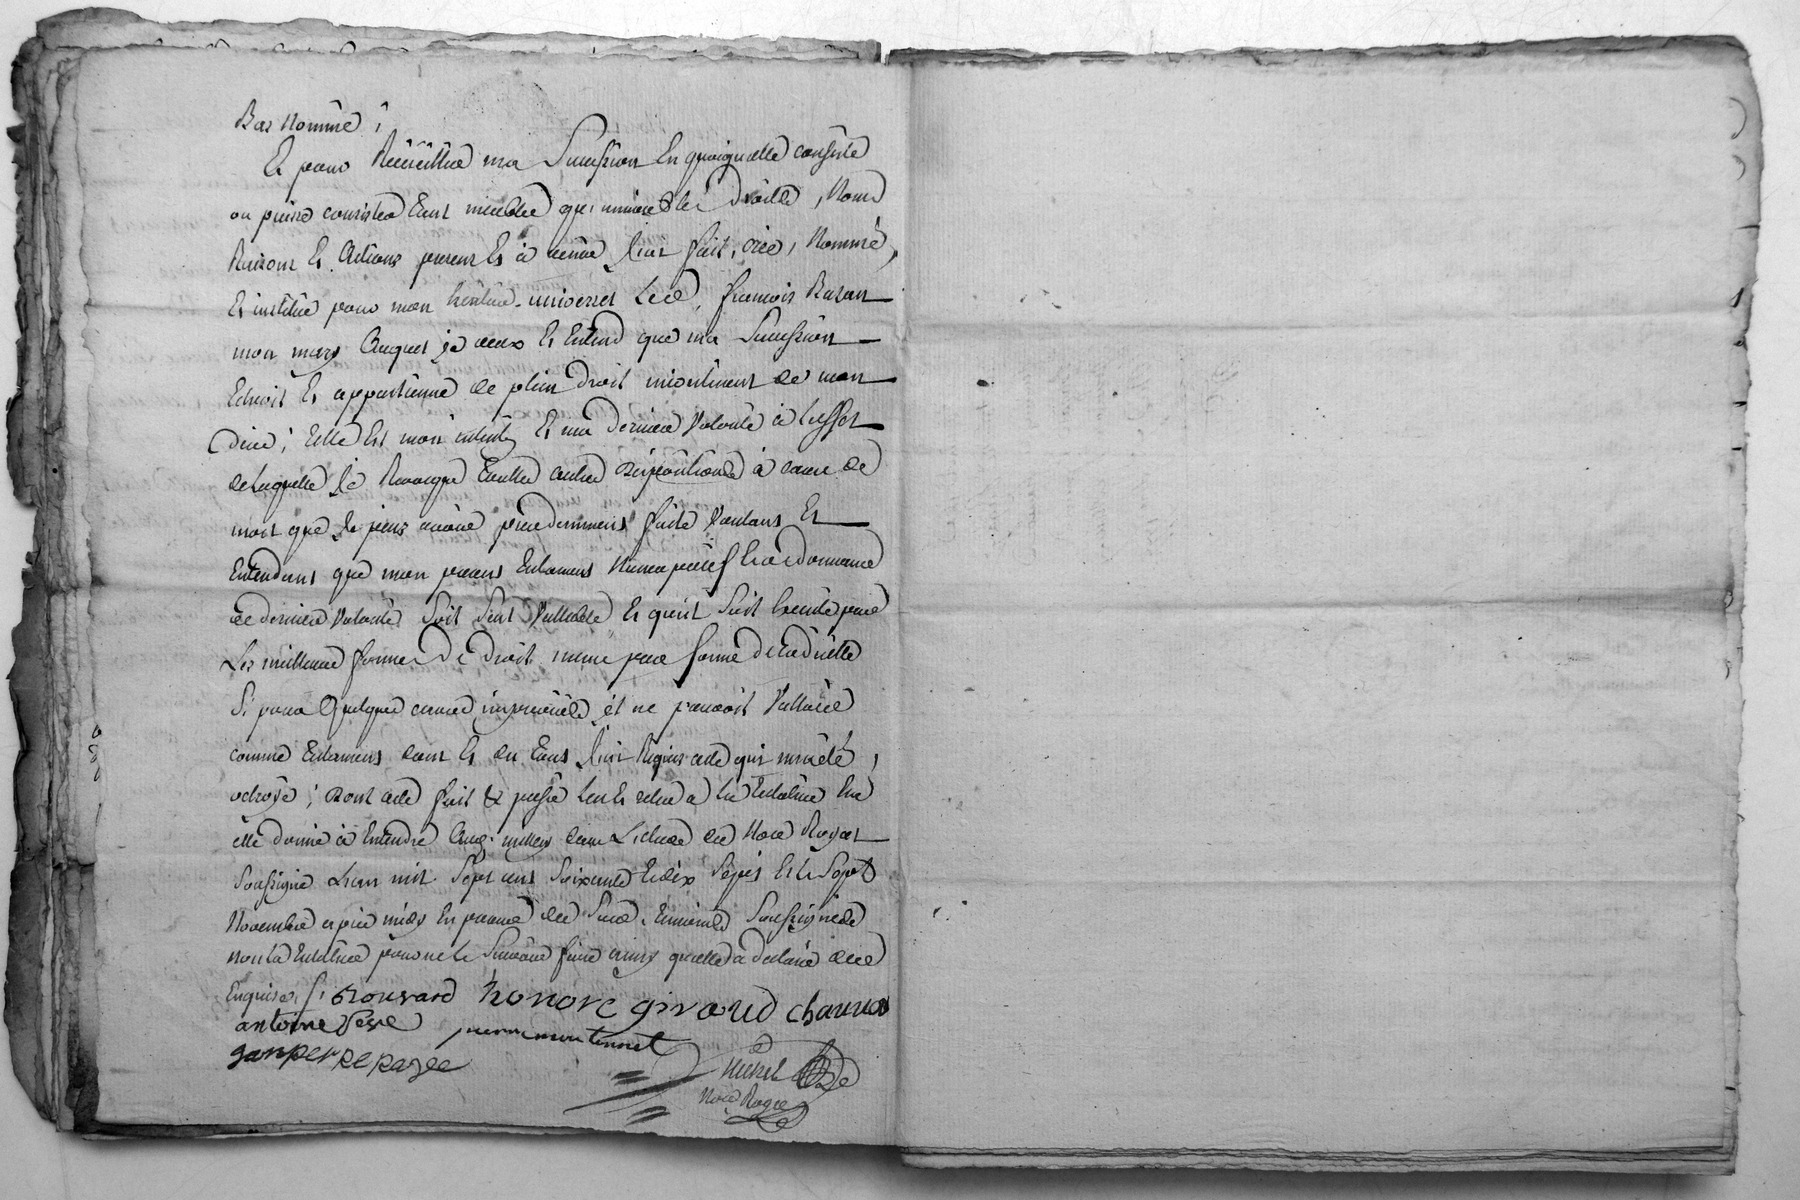 Bas Nommé ;
Et pour Recüeillire ma Sucession En quoiquelle consiste
ou puisse consister tant meuble que immeuble Droitte, Noms
Raisons Et Actions presens Et à venir J'ai fait, créé, Nommé,
Et institué pour mon héritier universel Led. francois Bazan
mon mary Auquel je veux Et Entend que ma Sucession
Echoit Et appartienne de plein droit incontinent de mon
décé ; telle Est mon intent. Et ma derniere Volonté à Leffet
de laquelle Je Revoque toutte autre dispositions à cause de
mort que Je puis avoir précedemment faite Voulant Et
Entendant que mon present testament Nuncupatif Et ordonnance
de derniere Volonté Soit Seul Vallable Et quil Soit Execute par
Les meilleure forme De droit meme par forme de Codicille
Si pour quelque cause imprevüe il ne pouvoit Valloir
comme testament dont Et du tout J'ai Requis acte qui ma été
octroyé ; dont acte fait & passé leu Et relu a la testatrice Et a
elle donné à Entendre Aux milles dans Létude du Nore Royal
Soussigné L'an mil Sept cens Soixante Et dix Sept Et Le Sept
Novembre après midy En presence des Sieurs temoins Soussignés de
non la testatrice pour ne le Savoir faire ainsy quelle a déclaré de ce
Enquise. J. Bouvard honore giraud chauvet
antoine seve pierre moutonnet
ganper
Michel
Nore Royal